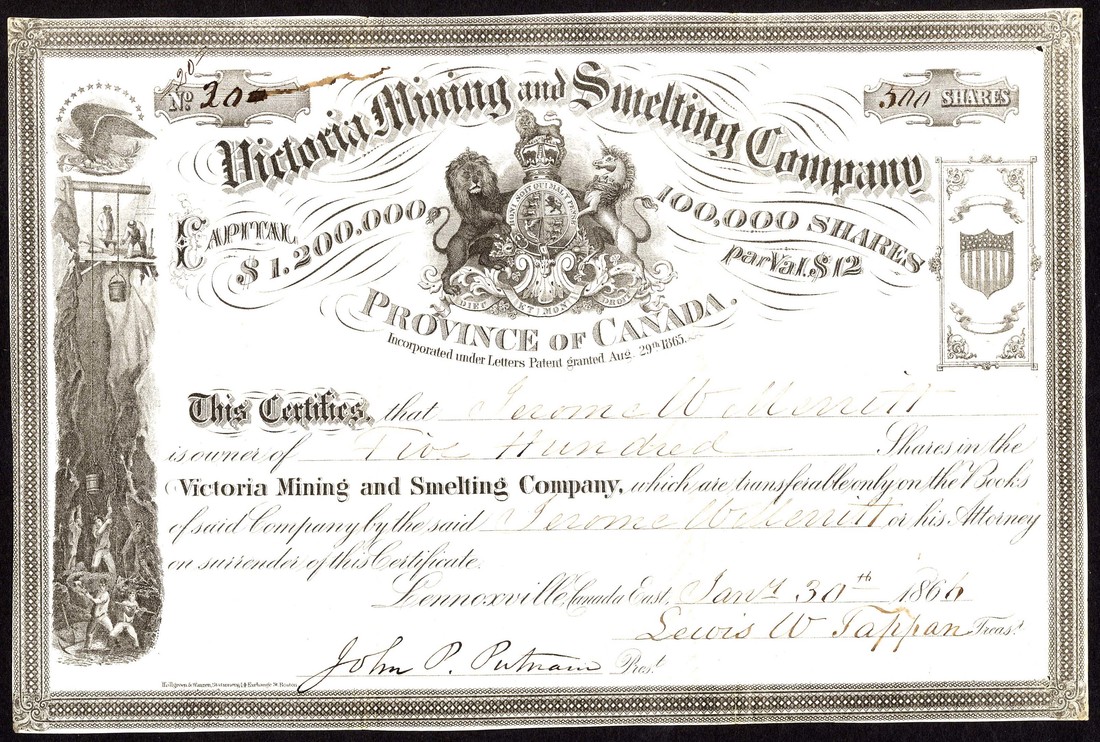 20
No 20
500 SHARES
Victoria Mining and Smelting Company
CAPITAL
$1.200.000
100,000 SHARES
par Val. $12
HONI SOIT QUI MAL Y PENSE
DIEU ET MON DROIT
PROVINCE OF CANADA.
Incorporated under Letters Patent granted Aug. 29th 1865.
This Certifies, that Jerome W Merritt
is owner of Five Hundred Shares in the
Victoria Mining and Smelting Company, which are transferable only on the Books
of said Company by the said Jerome W Merritt or his Attorney
on surrender of this Certificate.
Lennoxville, Canada East, Jany 30th 1866
Lewis W Tappan Treasr.
John P. Putnam Prest.
Stationers, Exchange St Boston